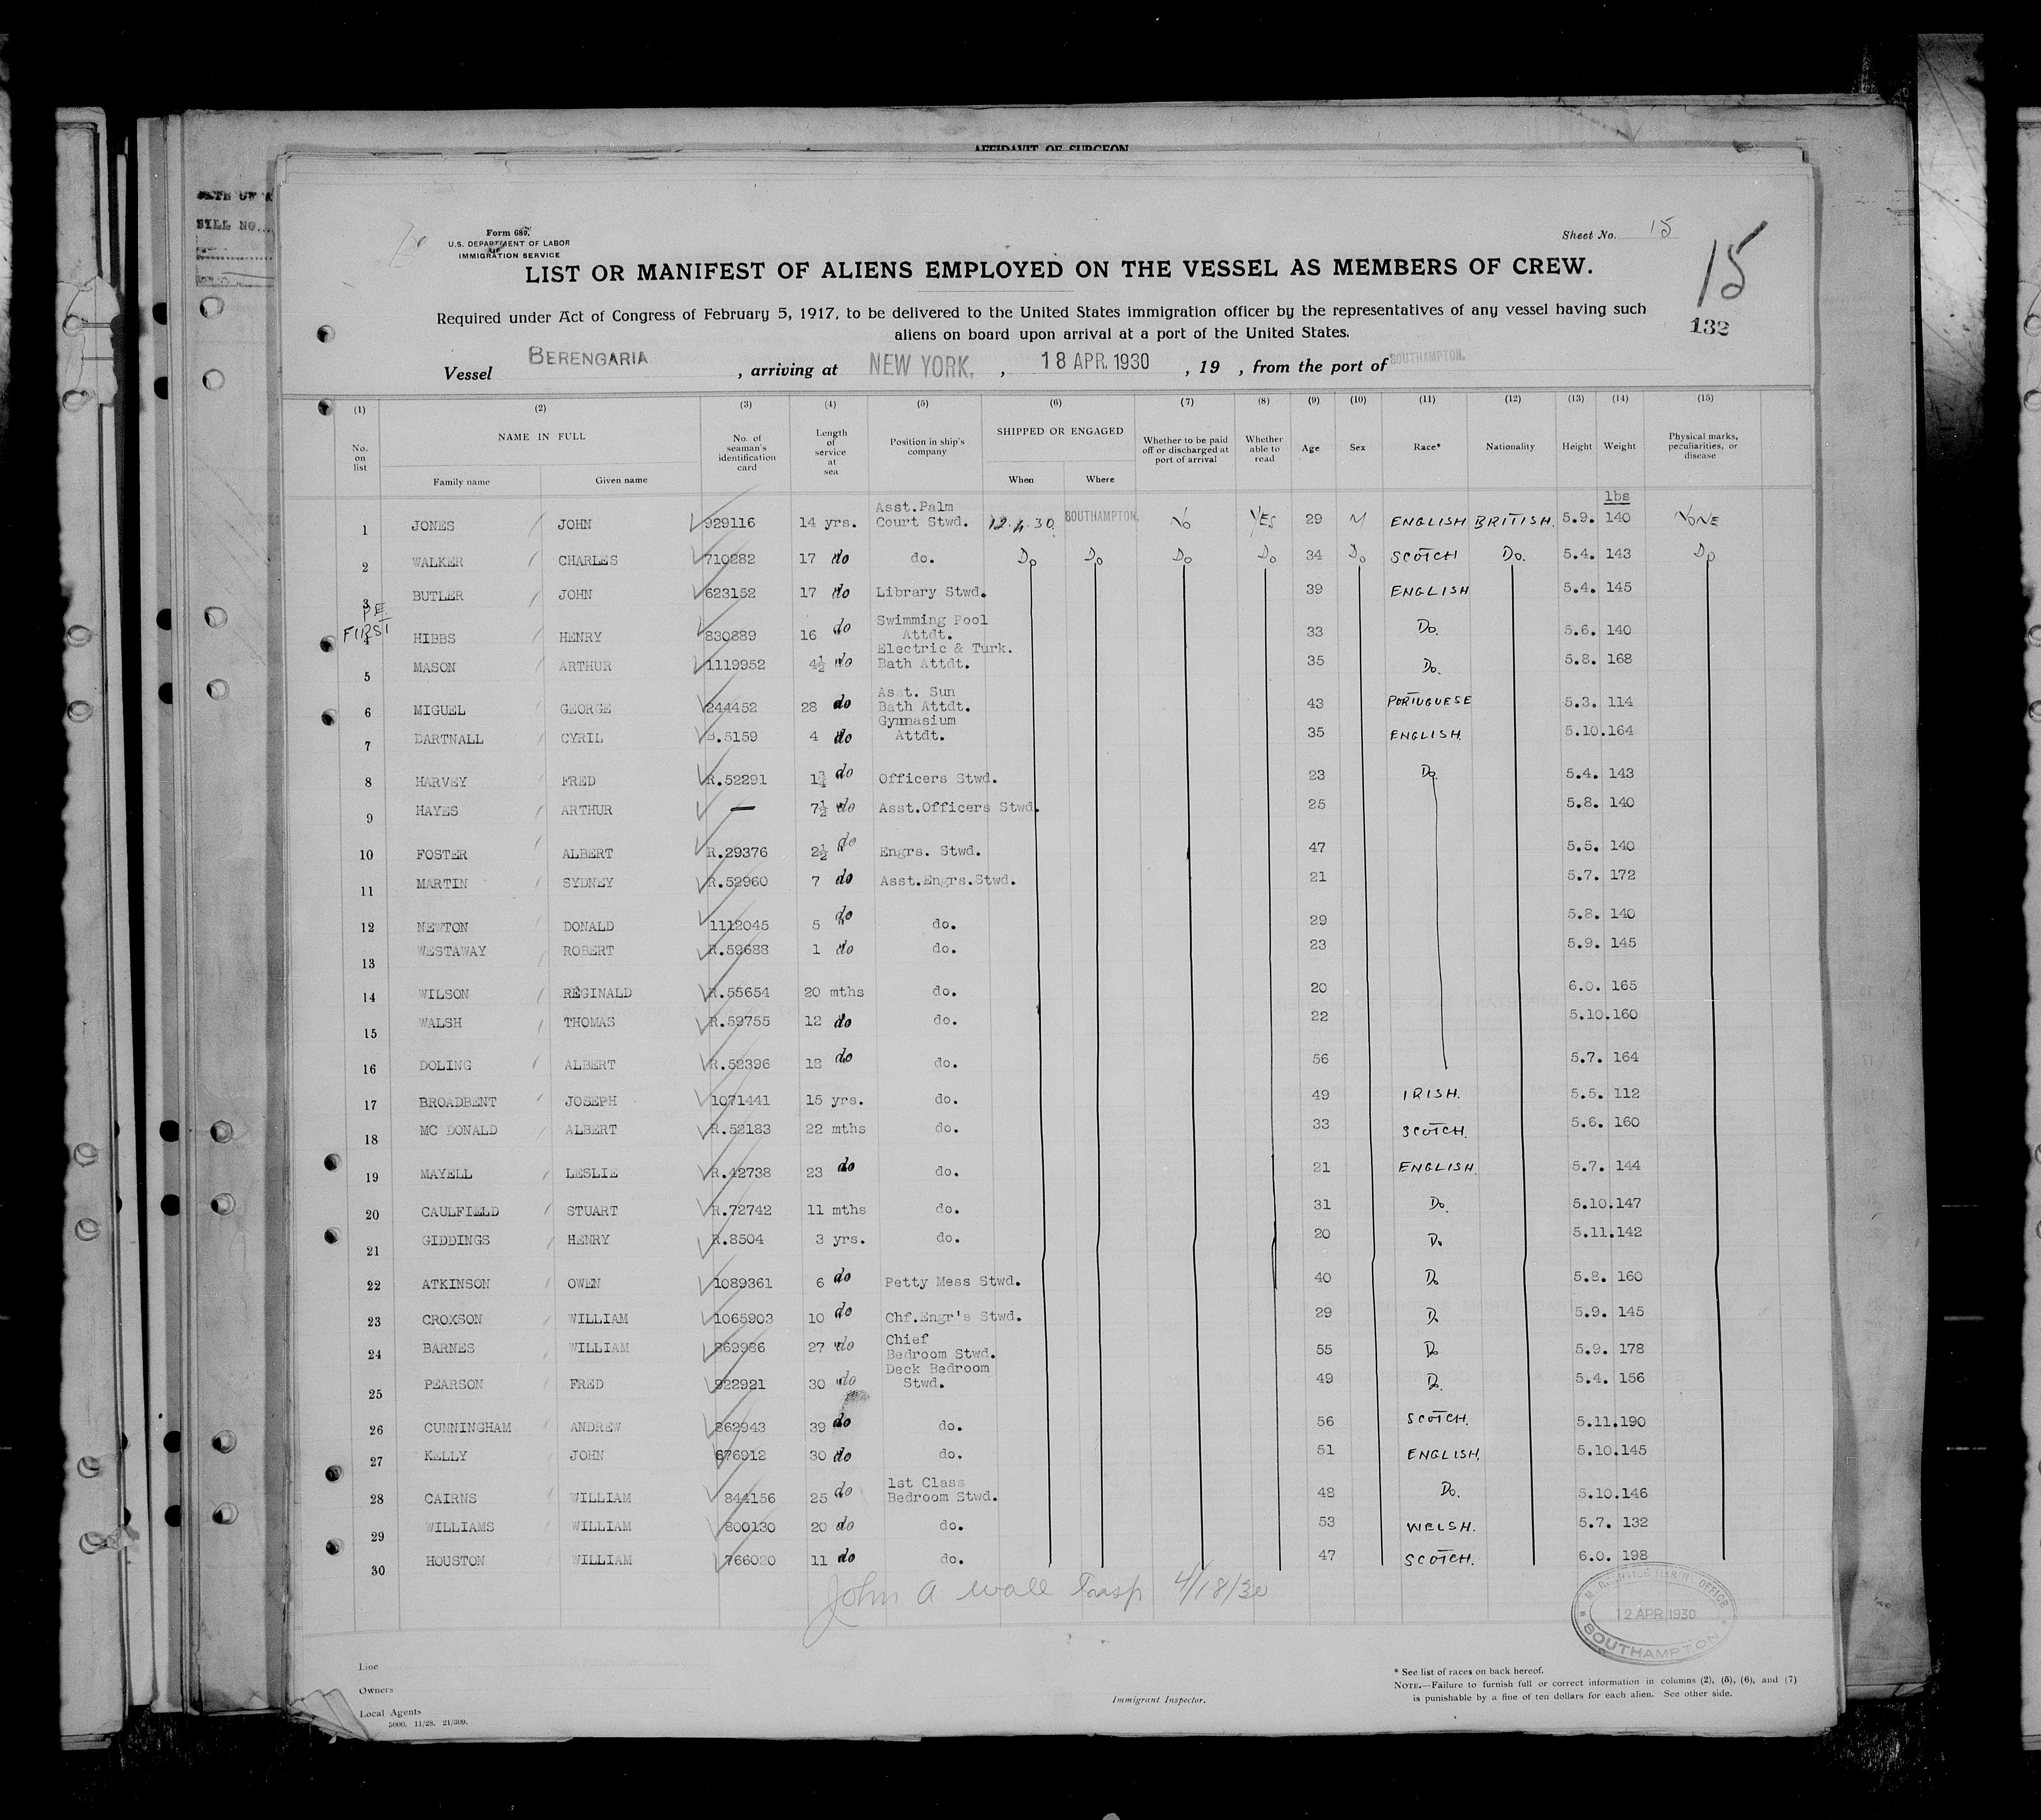 AFFIDAVIT OF SURGEON
BILL NO.
Form 680.
U.S. DEPARTMENT OF LABOR
IMMIGRATION SERVICE
Sheet No. 15
15
132
LIST OR MANIFEST OF ALIENS EMPLOYED ON THE VESSEL AS MEMBERS OF CREW.
Required under Act of Congress of February 5, 1917, to be delivered to the United States immigration officer by the representatives of any vessel having such
aliens on board upon arrival at a port of the United States.
Vessel BERENGARIA, arriving at NEW YORK, 18 APR. 1930, 19 , from the port of SOUTHAMPTON.
(1) (2) (3) (4) (5) (6) (7) (8) (9) (10) (11) (12) (13) (14) (15)
No. on list NAME IN FULL Family name Given name No. of seaman's identification card Length of service at sea Position in ship's company SHIPPED OR ENGAGED When Where Whether to be paid off or discharged at port of arrival Whether able to read Age Sex Race* Nationality Height Weight Physical marks, peculiarities, or disease
lbs
1 JONES JOHN 929116 14 yrs. Asst.Palm Court Stwd. 12.4.30. SOUTHAMPTON. No YES 29 M ENGLISH BRITISH. 5.9. 140 NONE
2 WALKER CHARLES 710282 17 do do. Do Do Do Do 34 Do SCOTCH Do. 5.4. 143 Do
3 BUTLER JOHN 623152 17 do Library Stwd. 39 ENGLISH 5.4. 145
FIRST
4 HIBBS HENRY 830889 16 do Swimming Pool Attdt. 33 Do. 5.6. 140
5 MASON ARTHUR 1119952 4½ do Electric & Turk. Bath Attdt. 35 Do. 5.8. 168
6 MIGUEL GEORGE 244452 28 do Asst. Sun Bath Attdt. 43 PORTUGUESE 5.3. 114
7 DARTNALL CYRIL .5159 4 do Gymnasium Attdt. 35 ENGLISH. 5.10.164
8 HARVEY FRED R.52291 1¾ do Officers Stwd. 23 Do. 5.4. 143
9 HAYES ARTHUR — 7½ do Asst.Officers Stwd. 25 5.8. 140
10 FOSTER ALBERT R.29376 2½ do Engrs. Stwd. 47 5.5. 140
11 MARTIN SYDNEY R.52960 7 do Asst.Engrs.Stwd. 21 5.7. 172
12 NEWTON DONALD 1112045 5 do do. 29 5.8. 140
13 WESTAWAY ROBERT R.59688 1 do do. 23 5.9. 145
14 WILSON REGINALD R.55654 20 mths do. 20 6.0. 165
15 WALSH THOMAS R.59755 12 do do. 22 5.10.160
16 DOLING ALBERT R.52396 18 do do. 56 5.7. 164
17 BROADBENT JOSEPH 1071441 15 yrs. do. 49 IRISH. 5.5. 112
18 MC DONALD ALBERT R.52183 22 mths do. 33 SCOTCH. 5.6. 160
19 MAYELL LESLIE R.42738 23 do do. 21 ENGLISH. 5.7. 144
20 CAULFIELD STUART R.72742 11 mths do. 31 Do. 5.10.147
21 GIDDINGS HENRY R.8504 3 yrs. do. 20 Do 5.11.142
22 ATKINSON OWEN 1089361 6 do Petty Mess Stwd. 40 Do 5.8. 160
23 CROXSON WILLIAM 1065903 10 do Chf.Engr's Stwd. 29 Do 5.9. 145
24 BARNES WILLIAM 869986 27 do Chief Bedroom Stwd. 55 Do 5.9. 178
25 PEARSON FRED 922921 30 do Deck Bedroom Stwd. 49 Do. 5.4. 156
26 CUNNINGHAM ANDREW 862943 39 do do. 56 SCOTCH. 5.11.190
27 KELLY JOHN 676912 30 do do. 51 ENGLISH. 5.10.145
28 CAIRNS WILLIAM 844156 25 do 1st Class Bedroom Stwd. 48 Do. 5.10.146
29 WILLIAMS WILLIAM 800130 20 do do. 53 WELSH. 5.7. 132
30 HOUSTON WILLIAM 766020 11 do do. 47 SCOTCH. 6.0. 198
John A Wall Insp 4/18/30
12 APR 1930
SOUTHAMPTON
Line
Owners
Local Agents
5000. 11/28. 21/309.
Immigrant Inspector.
* See list of races on back hereof.
NOTE.—Failure to furnish full or correct information in columns (2), (5), (6), and (7)
is punishable by a fine of ten dollars for each alien. See other side.